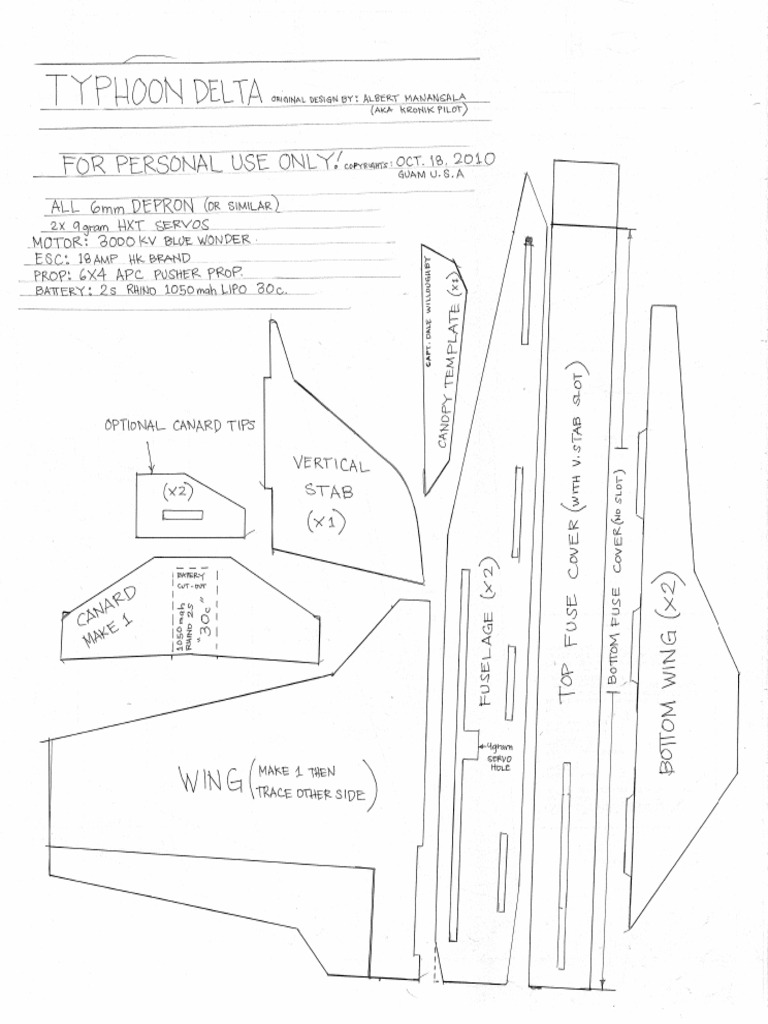 TYPHOON DELTA ORIGINAL DESIGN BY: ALBERT MANANGALA
(AKA KRONIK PILOT)
FOR PERSONAL USE ONLY! COPYRIGHTS: OCT. 18, 2010
GUAM U.S.A
ALL 6mm DEPRON (OR SIMILAR)
2X 9gram HXT SERVOS
MOTOR: 3000 KV BLUE WONDER
ESC: 18AMP HK BRAND
PROP: 6X4 APC PUSHER PROP.
BATTERY: 2S RHINO 1050mah LIPO 30c.
CAPT. DALE WILLOUGHBY
CANOPY TEMPLATE (X1)
OPTIONAL CANARD TIPS
(X2)
VERTICAL
STAB
(X1)
CANARD
MAKE 1
BATTERY
CUT-OUT
1050mah
RHINO 2S
"30c"
FUSELAGE (X2)
9gram
SERVO
HOLE
TOP FUSE COVER (WITH V.STAB SLOT)
BOTTOM FUSE COVER (NO SLOT)
BOTTOM WING (X2)
WING (MAKE 1 THEN
TRACE OTHER SIDE)